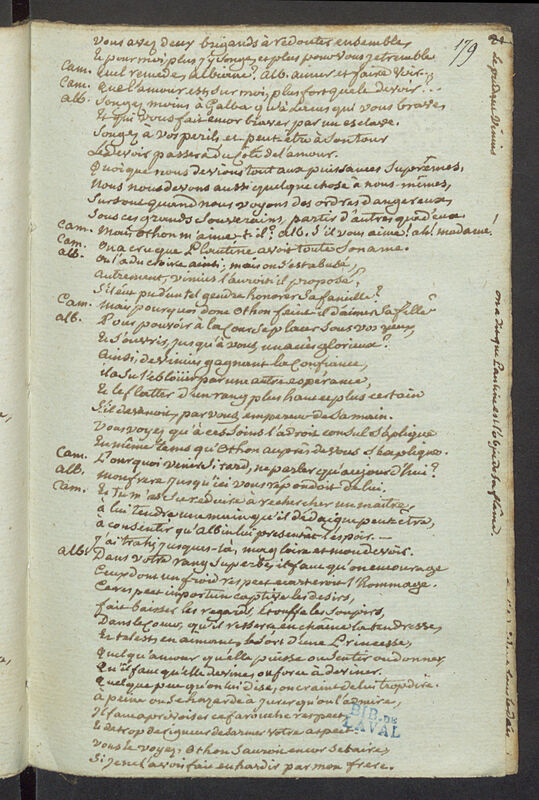 179
Vous avez deux brigands à redouter ensemble,
Et pour moi, plus j'y songe, et plus pour vous je tremble
Cam. Quel remede, albiane? Alb. aimer et faire voir...
Cam. Que l'amour est, sur moi, plus fort que le devoir...
alb. Songez moins à Galba qu'à Lacus qui vous brave,
Et qui vous fait encor braver par un esclave.
Songez à vos perils, et peut être à son tour
Le devoir passera du côté de l'amour.
Quoique nous devions tout aux puissances Suprêmes,
Nous nous devons aussi quelque chose à nous-mêmes,
Surtout quand nous voyons des ordres dangereux,
Sous ces grands Souverains, partir d'autres que d'eux
Cam. Mais Othon m'aime-t-il? Alb. S'il vous aime? ah! madame.
Cam. On a cru que Plautine avoit toute son ame.
alb. On l'a du croire ainsi, mais on s'est abusé,
Autrement, vinius l'auroit-il proposé,
S'il eut pu d'un tel gendre honorer sa famille?
Cam. Mais pourquoi donc Othon feint-il d'aimer sa fille?
alb. Pour pouvoir à la Cour se placer sous vos yeux,
Et s'ouvrir, jusqu'à vous, un accès glorieux.
Ainsi, de vinius gagnant la Confiance,
il a su l'eblouir par une autre espérance,
Et le flatter d'un rang plus haut et plus certain
S'il devenoit, par vous, empereur de sa main.
Vous voyez qu'à ces soins l'adroit consul s'aplique
En même tems qu'Othon auprès de vous s'explique.
Cam. Pourquoi venir si tard, ne parler qu'aujourd'hui?
alb. mon frere jusqu'ici vous repondoit de lui.
Cam. Et tu m'as su reduire à rechercher un maître,
à lui tendre une main qu'il dédaigne peut etre,
à consentir qu'Albin lui presentât l'espoir. —
J'ai trahi, jusques-là, ma gloire et mon devoir.
Albi. Dans votre rang superbe, il faut qu'on encourage
Ceux dont un froid respect écarteroit l'hommage.
Ce respect importun captive les desirs,
fait baisser les regards, etouffe les soupirs,
Dans le Cœur, qu'il resserre, enchaîne la tendresse,
Et tel est, en aimant, le sort d'une Princesse,
Quelqu'amour qu'elle puisse ou sentir ou donner,
Qu'il faut qu'elle devine, ou force à deviner.
Quelque peu qu'on lui dise, on craint de lui trop dire.
à peine on se hazarde à jurer qu'on l'admire,
Il faut aprivoiser ce farouche respect
Et de trop de rigueur desarmer votre aspect.
Vous le voyez: Othon sauroit encor se taire,
Si je ne l'avois fait enhardir par mon frere.
BIB. DE
LAVAL
Le gendre de Vinius
on a dit que Plautine est l'objet de sa flâme